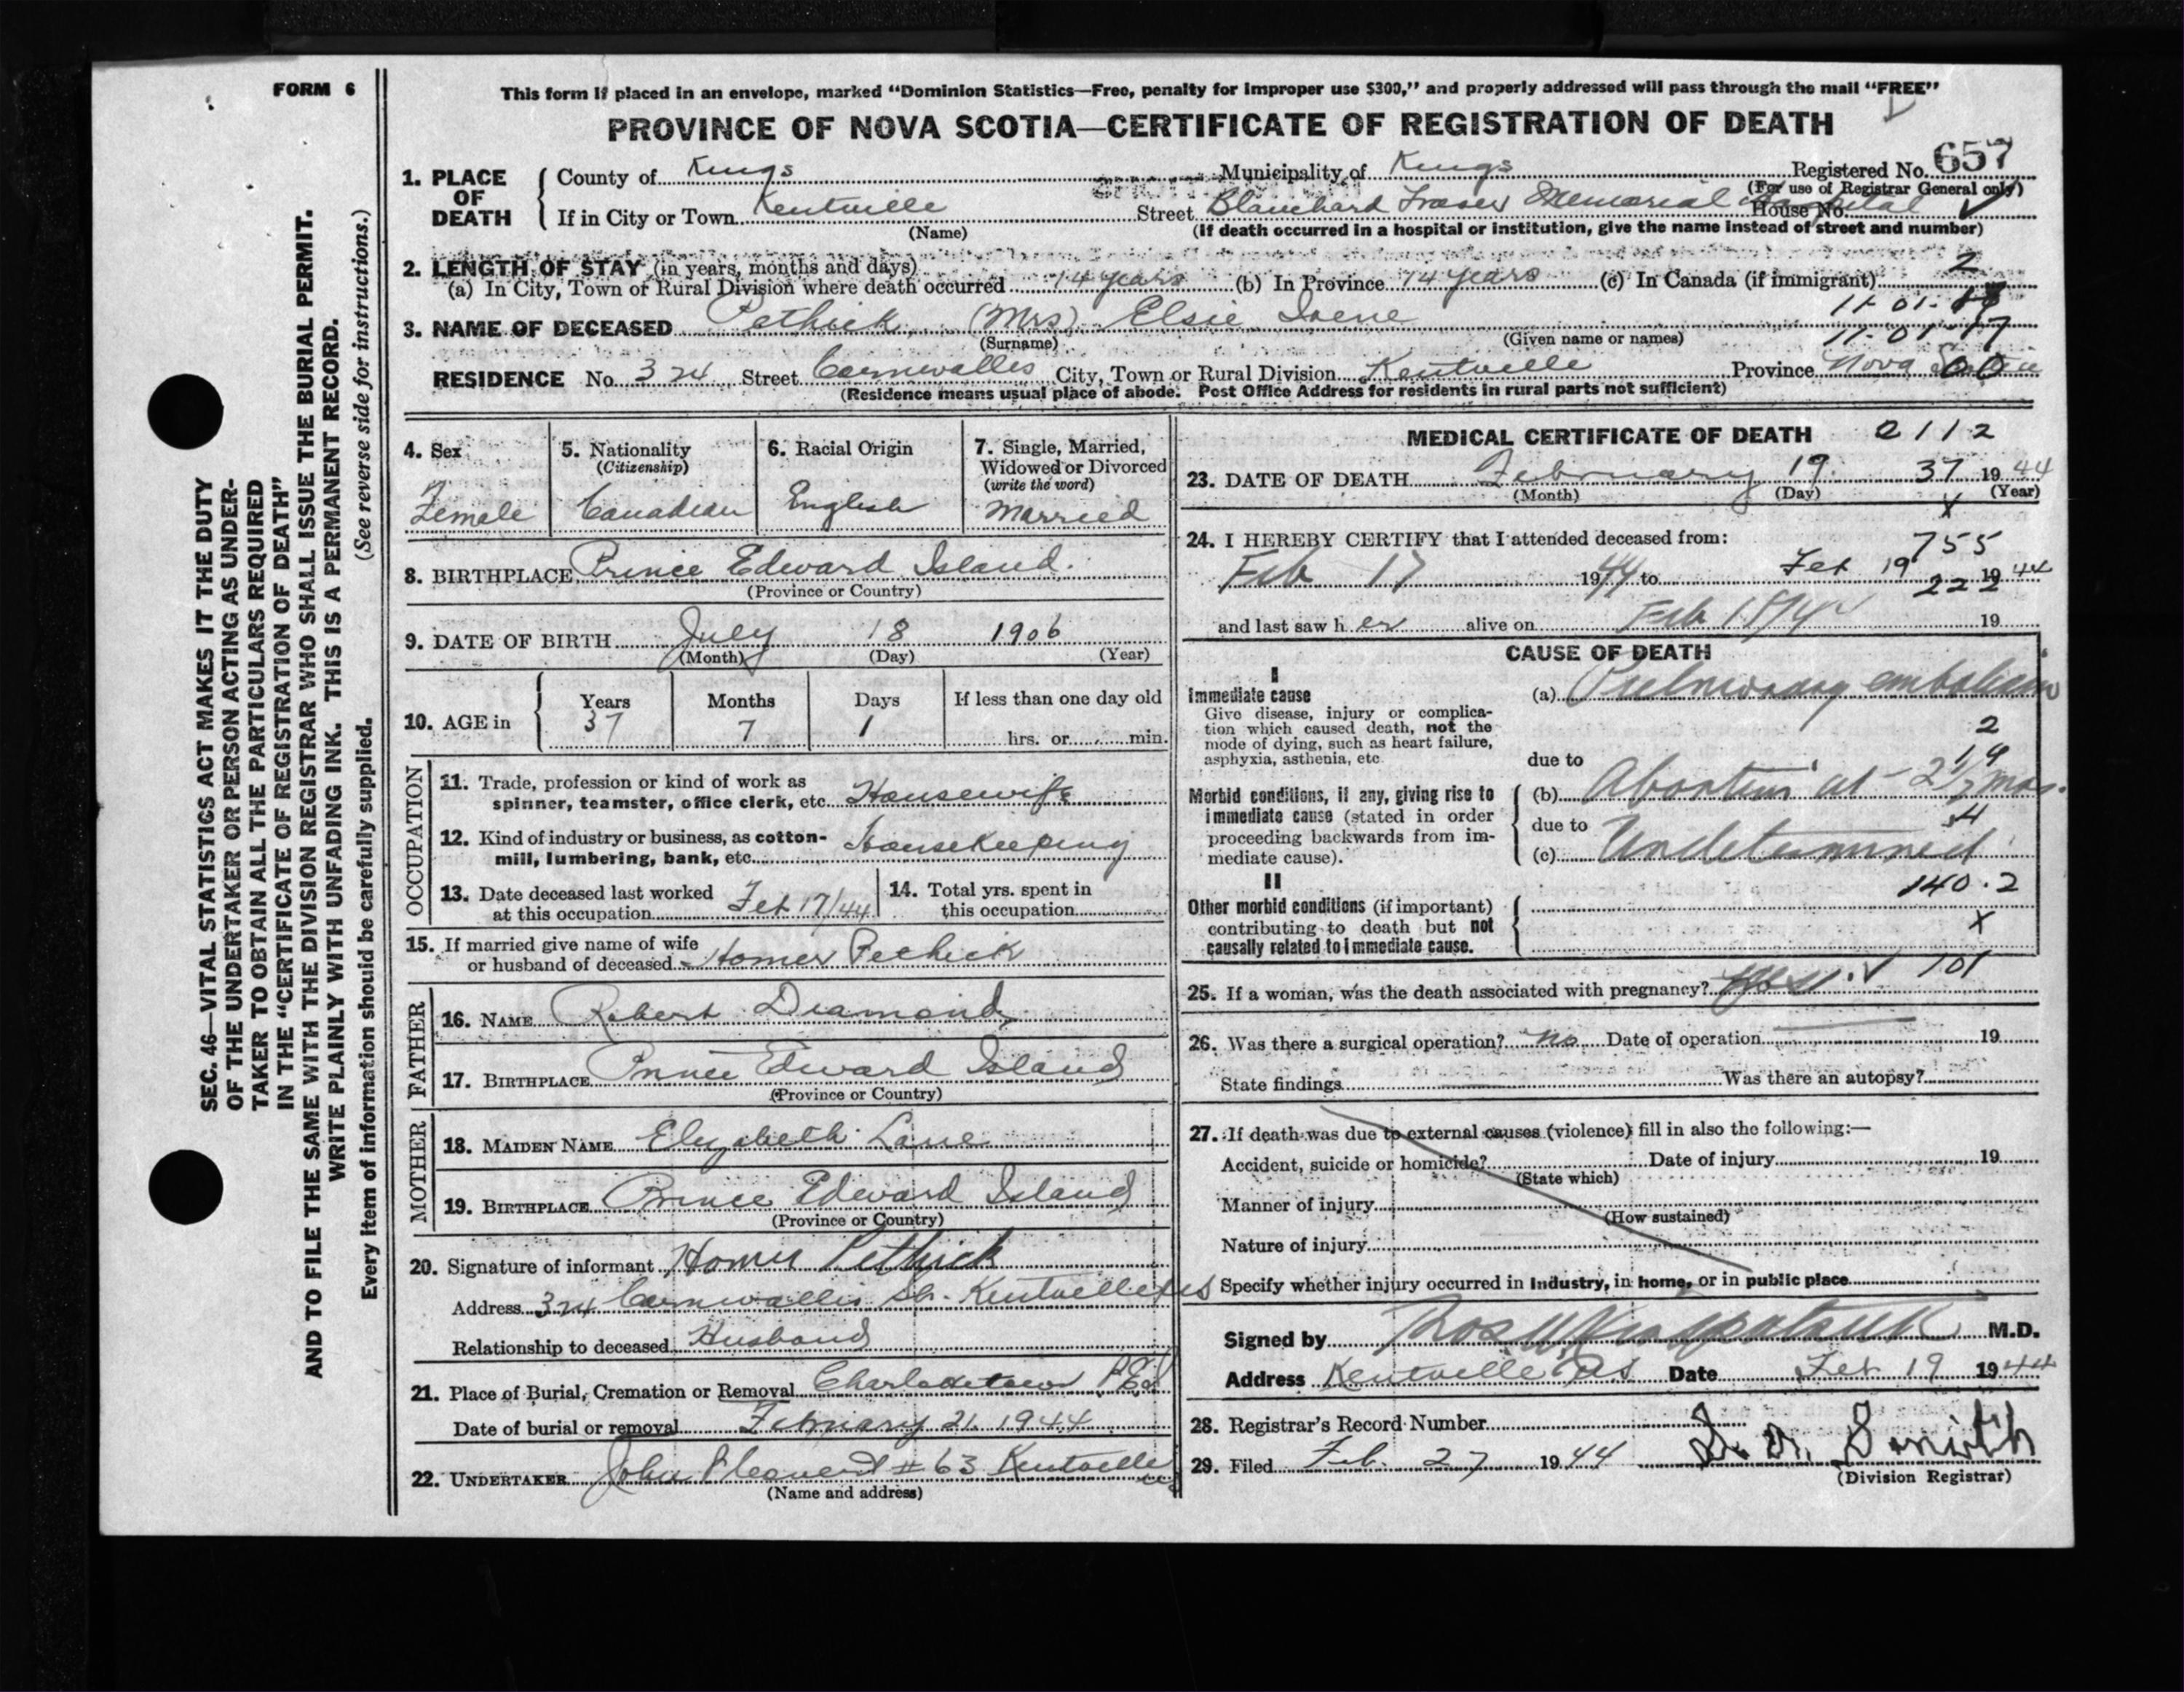 FORM 6
This form if placed in an envelope, marked "Dominion Statistics—Free, penalty for improper use $300," and properly addressed will pass through the mail "FREE"
PROVINCE OF NOVA SCOTIA—CERTIFICATE OF REGISTRATION OF DEATH
SEC. 46—VITAL STATISTICS ACT MAKES IT THE DUTY
OF THE UNDERTAKER OR PERSON ACTING AS UNDER-
TAKER TO OBTAIN ALL THE PARTICULARS REQUIRED
IN THE "CERTIFICATE OF REGISTRATION OF DEATH"
AND TO FILE THE SAME WITH THE DIVISION REGISTRAR WHO SHALL ISSUE THE BURIAL PERMIT.
WRITE PLAINLY WITH UNFADING INK. THIS IS A PERMANENT RECORD.
Every item of information should be carefully supplied. (See reverse side for instructions.)
1. PLACE OF DEATH
County of Kings Municipality of Kings Registered No. 657
(For use of Registrar General only)
If in City or Town Kentville Street Blanchard Fraser Memorial Hospital House No.
(Name) (If death occurred in a hospital or institution, give the name instead of street and number)
2. LENGTH OF STAY (in years, months and days)
2
(a) In City, Town or Rural Division where death occurred 14 years (b) In Province 14 years (c) In Canada (if immigrant)
11-01-
3. NAME OF DECEASED Pethick, (Mrs) Elsie Irene
(Surname) (Given name or names) 11-01-17
RESIDENCE No. 324 Street Cornwallis City, Town or Rural Division Kentville Province Nova Scotia 00
(Residence means usual place of abode. Post Office Address for residents in rural parts not sufficient)
4. Sex
Female
5. Nationality
(Citizenship)
Canadian
6. Racial Origin
English
7. Single, Married,
Widowed or Divorced
(write the word)
Married
8. BIRTHPLACE Prince Edward Island.
(Province or Country)
9. DATE OF BIRTH July 18 1906
(Month) (Day) (Year)
10. AGE in
Years Months Days If less than one day old
37 7 1 hrs. or min.
OCCUPATION
11. Trade, profession or kind of work as
spinner, teamster, office clerk, etc. Housewife
12. Kind of industry or business, as cotton-
mill, lumbering, bank, etc. Housekeeping
13. Date deceased last worked
at this occupation Feb 17/44
14. Total yrs. spent in
this occupation
15. If married give name of wife
or husband of deceased Homer Pethick
FATHER
16. NAME Robert Diamond
17. BIRTHPLACE Prince Edward Island
(Province or Country)
MOTHER
18. MAIDEN NAME Elizabeth Lane
19. BIRTHPLACE Prince Edward Island
(Province or Country)
20. Signature of informant Homer Pethick
Address 324 Cornwallis St. Kentville NS
Relationship to deceased Husband
21. Place of Burial, Cremation or Removal Charlottetown P.E.I.
Date of burial or removal February 21 1944
22. UNDERTAKER John # 63 Kentville
(Name and address)
MEDICAL CERTIFICATE OF DEATH 2112
23. DATE OF DEATH February 19 37 1944
(Month) (Day) (Year)
X
24. I HEREBY CERTIFY that I attended deceased from:
755
Feb 17 1944 to Feb 19 1944
222
and last saw her alive on Feb 19
CAUSE OF DEATH
I
Immediate cause
Give disease, injury or complica-
tion which caused death, not the
mode of dying, such as heart failure,
asphyxia, asthenia, etc.
(a) Pulmonary embolism
2
due to
19
Morbid conditions, if any, giving rise to
immediate cause (stated in order
proceeding backwards from im-
mediate cause).
(b) Abortion at 2 1/2 mos.
due to 4
(c) Undetermined
II
140.2
Other morbid conditions (if important)
contributing to death but not
causally related to immediate cause.
X
101
25. If a woman, was the death associated with pregnancy? Yes
26. Was there a surgical operation? No Date of operation 19
State findings Was there an autopsy?
27. If death was due to external causes (violence) fill in also the following:—
Accident, suicide or homicide? Date of injury 19
(State which)
Manner of injury
(How sustained)
Nature of injury
Specify whether injury occurred in industry, in home, or in public place
Signed by M.D.
Address Kentville NS Date Feb 19 1944
28. Registrar's Record Number
29. Filed Feb. 27 1944 Smith
(Division Registrar)